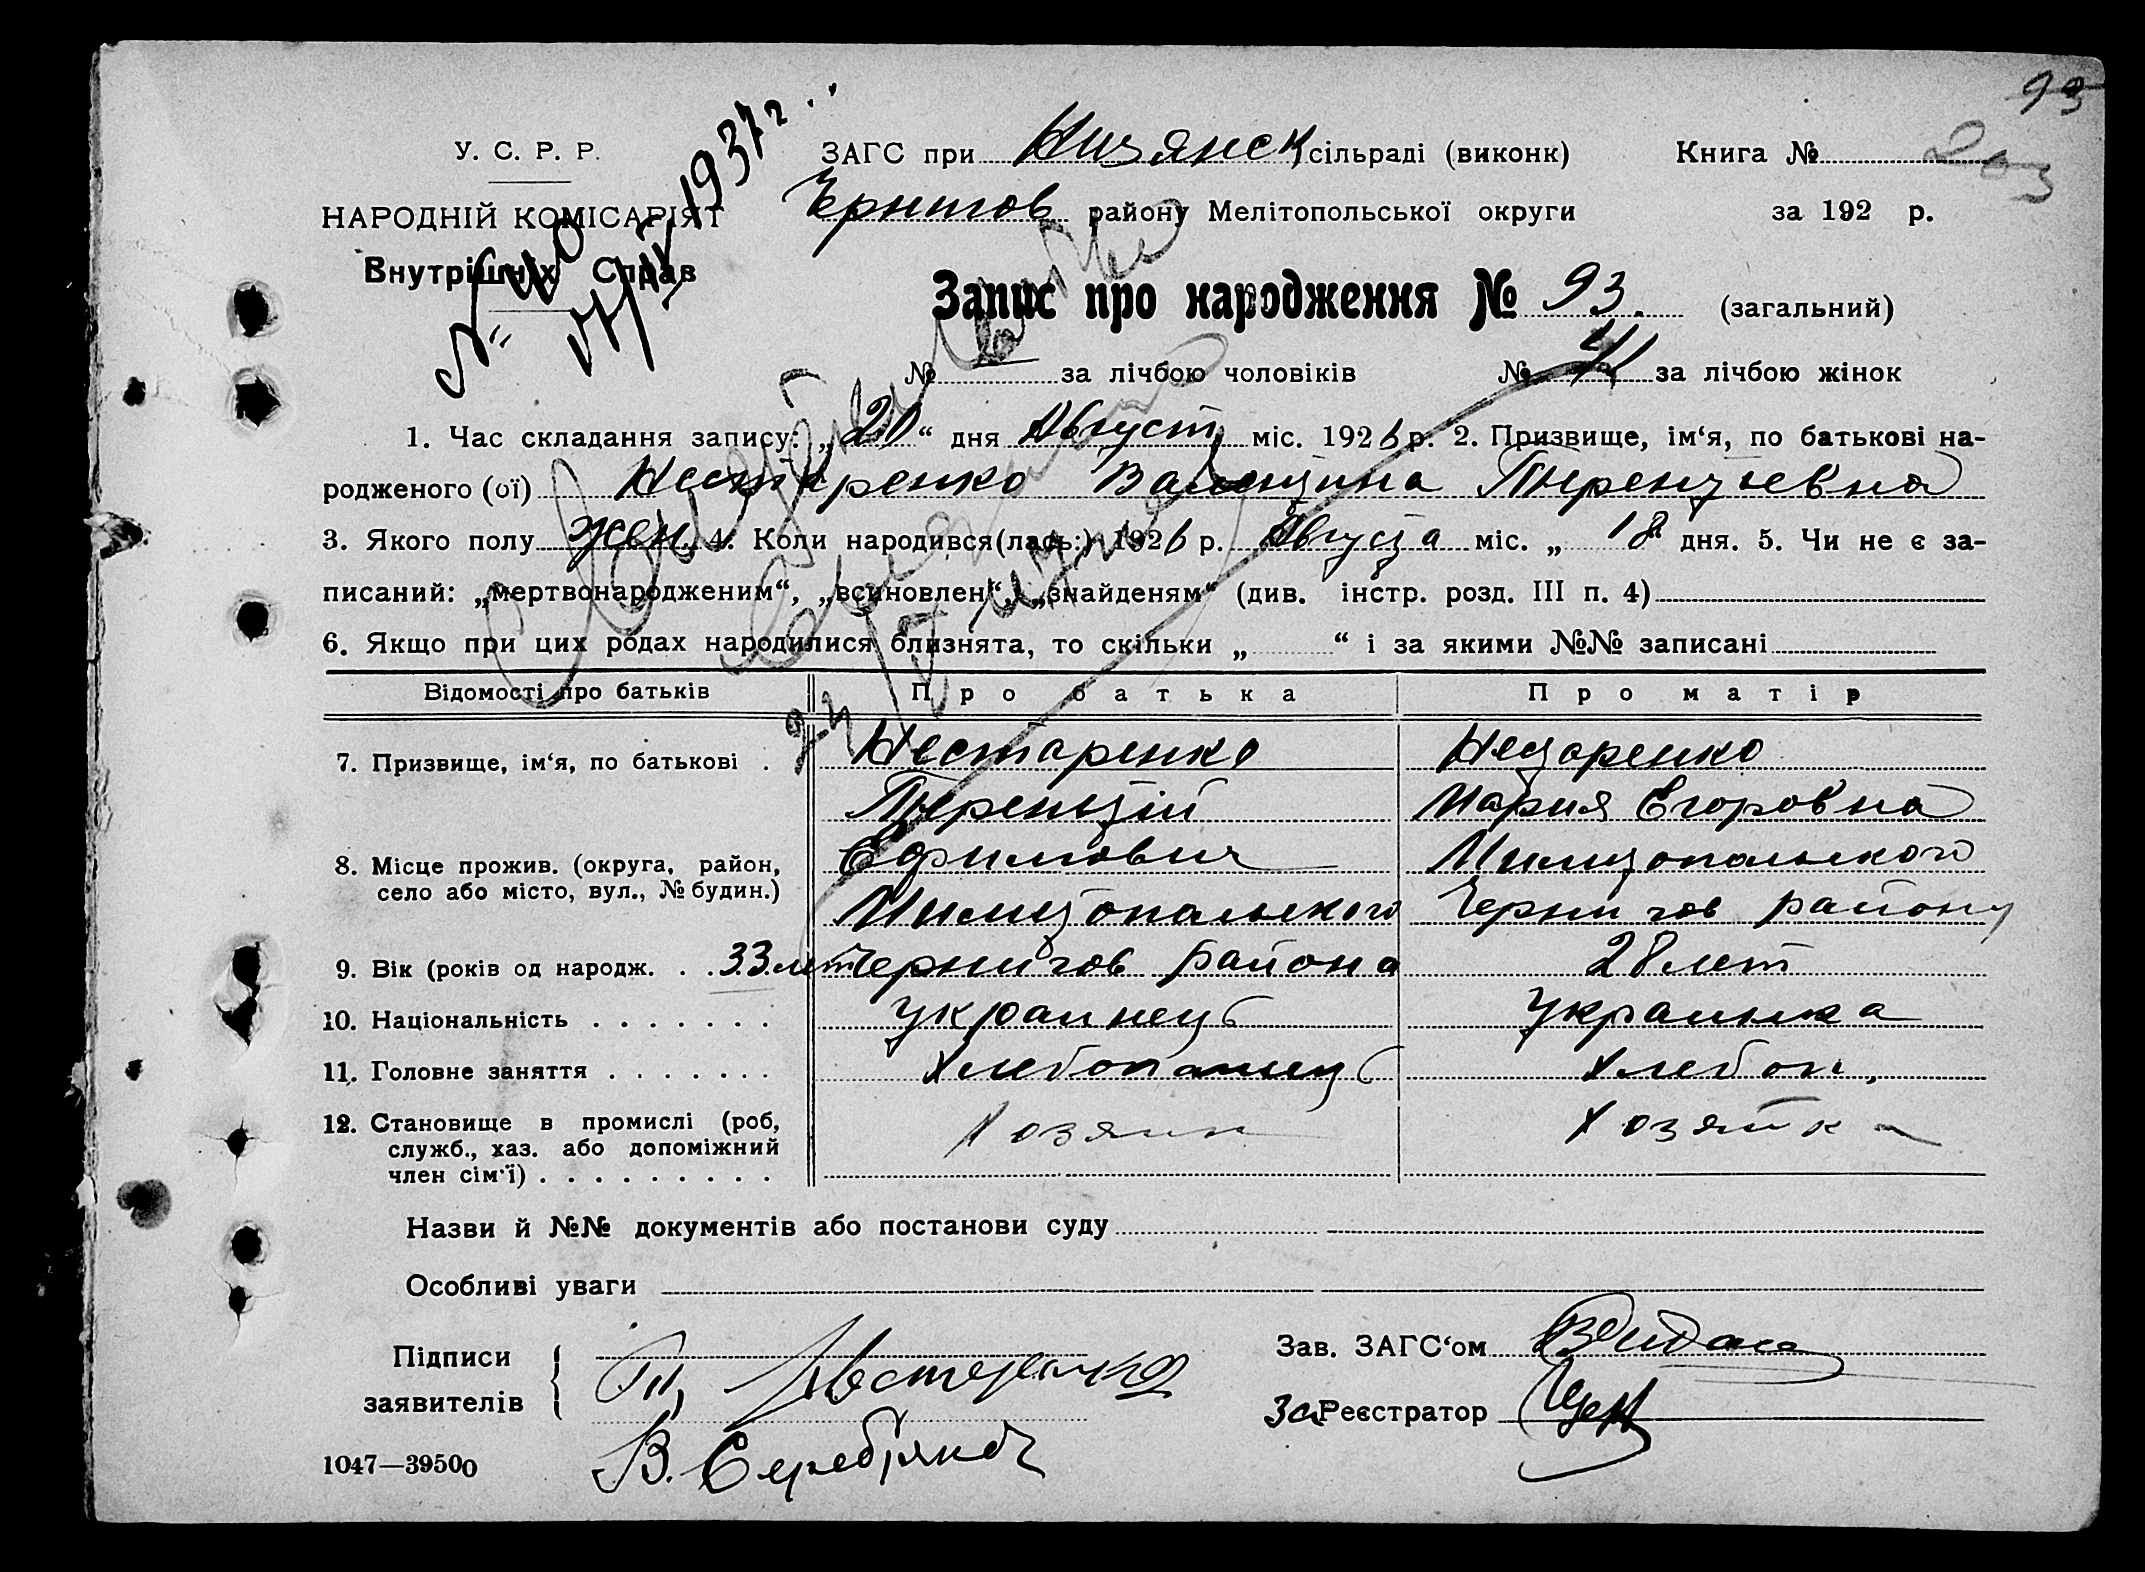 93
203
У. С. Р. Р.
НАРОДНІЙ КОМІСАРІЯТ
Внутрішніх Справ
1937 г.
ЗАГС при Низянск сільраді (виконк) Книга №
Чернигов району Мелітопольської округи за 192 р.
Запис про народження № 93. (загальний)
№ — за лічбою чоловіків № 41 за лічбою жінок
1. Час складання запису: „20“ дня Август міс. 1926 р. 2. Призвище, ім‘я, по батькові на-
родженого (ої) Нестаренко Валентина Тиреньтьевна
3. Якого полу жен. 4. Коли народився(лась:) 1926 р. Августа міс. „18“ дня. 5. Чи не є за-
писаний: „мертвонародженим“, „всиновлен“, „знайденям“ (див. інстр. розд. III п. 4)
6. Якщо при цих родах народилися близнята, то скільки „ “ і за якими №№ записані
Відомості про батьків Про батька Про матір
7. Призвище, ім‘я, по батькові . Нестаренко Нестаренко
Тирентий Мария Егоровна
8. Місце прожив. (округа, район, село або місто, вул., № будин.) Ефимович Милитопольского
Милитопольского Чернигов району
9. Вік (років од народж. . . 33 лет Чернигов Района 28 лет
10. Національність . . . . . . . Украинец Украинка
11. Головне заняття . . . . . . . Хлебопашец Хлебоп.
12. Становище в промислі (роб, служб., хаз. або допоміжний член сім‘ї) . . . . . . . . . Хозяин Хозяйка
Назви й №№ документів або постанови суду
Особливі уваги
Підписи заявителів { Т. Нестеренко
В. Серебряков
Зав. ЗАГС‘ом
За Реєстратор
1047—39500